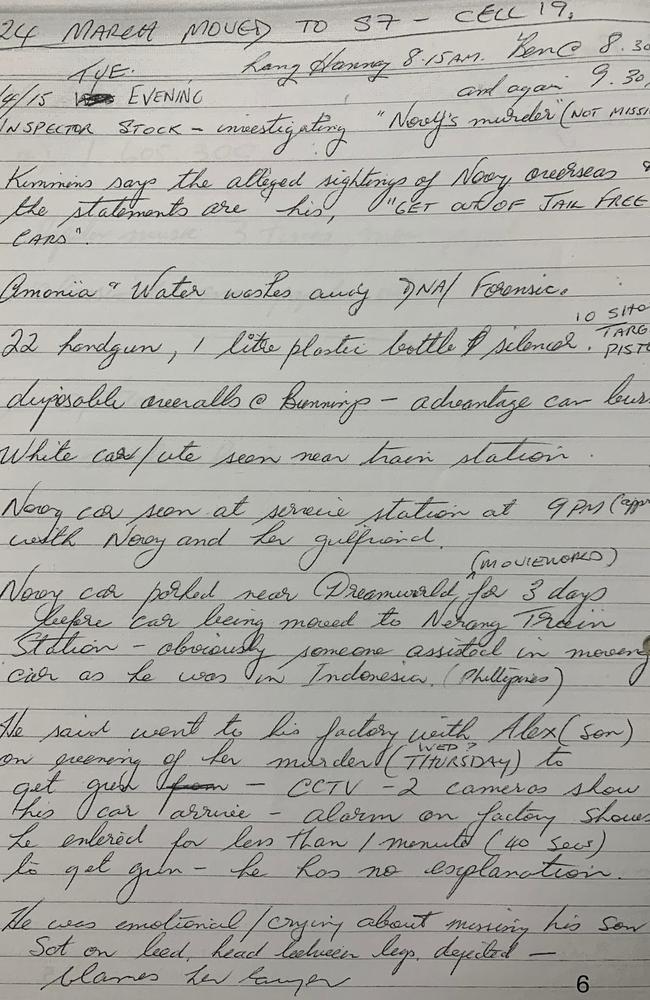 24 MARCH MOVED TO S7 - CELL 19.
Hanney 8.15AM. Ben @ 8.30
TUE. and again 9.30,
/4/15 EVENING
INSPECTOR STOCK - investigating "Novy's murder" (NOT MISSI
Kimmins says the alleged sightings of Novy overseas &
the statements are his, "GET OUT OF JAIL FREE
CARS".
Amonia & Water washes away DNA/ Forensic.
22 handgun, 1 litre plastic bottle silencer. 10 SHO
TARG
PISTO
disposable overalls @ Bunnings - advantage can burn
White car/ute seen near train station.
Novy car seen at service station at 9PM (app
with Novy and her
(MOVIEWORLD)
Novy car parked near Dreamworld, for 3 days
before car being moved to Nerang Train
Station - obviously someone assisted in moving
car as he was in Indonesia. (Phillipines)
He said went to his factory with Alex (son)
WED?
on evening of her murder (THURSDAY) to
get gun from - CCTV - 2 cameras show
his car arrive - alarm on factory shows
he entered for less than 1 menute (40 Secs)
to get gun - he has no explanation.
He was emotional/crying about missing his son
Sat on bed, head between legs, dejected -
blames her lawyer
6